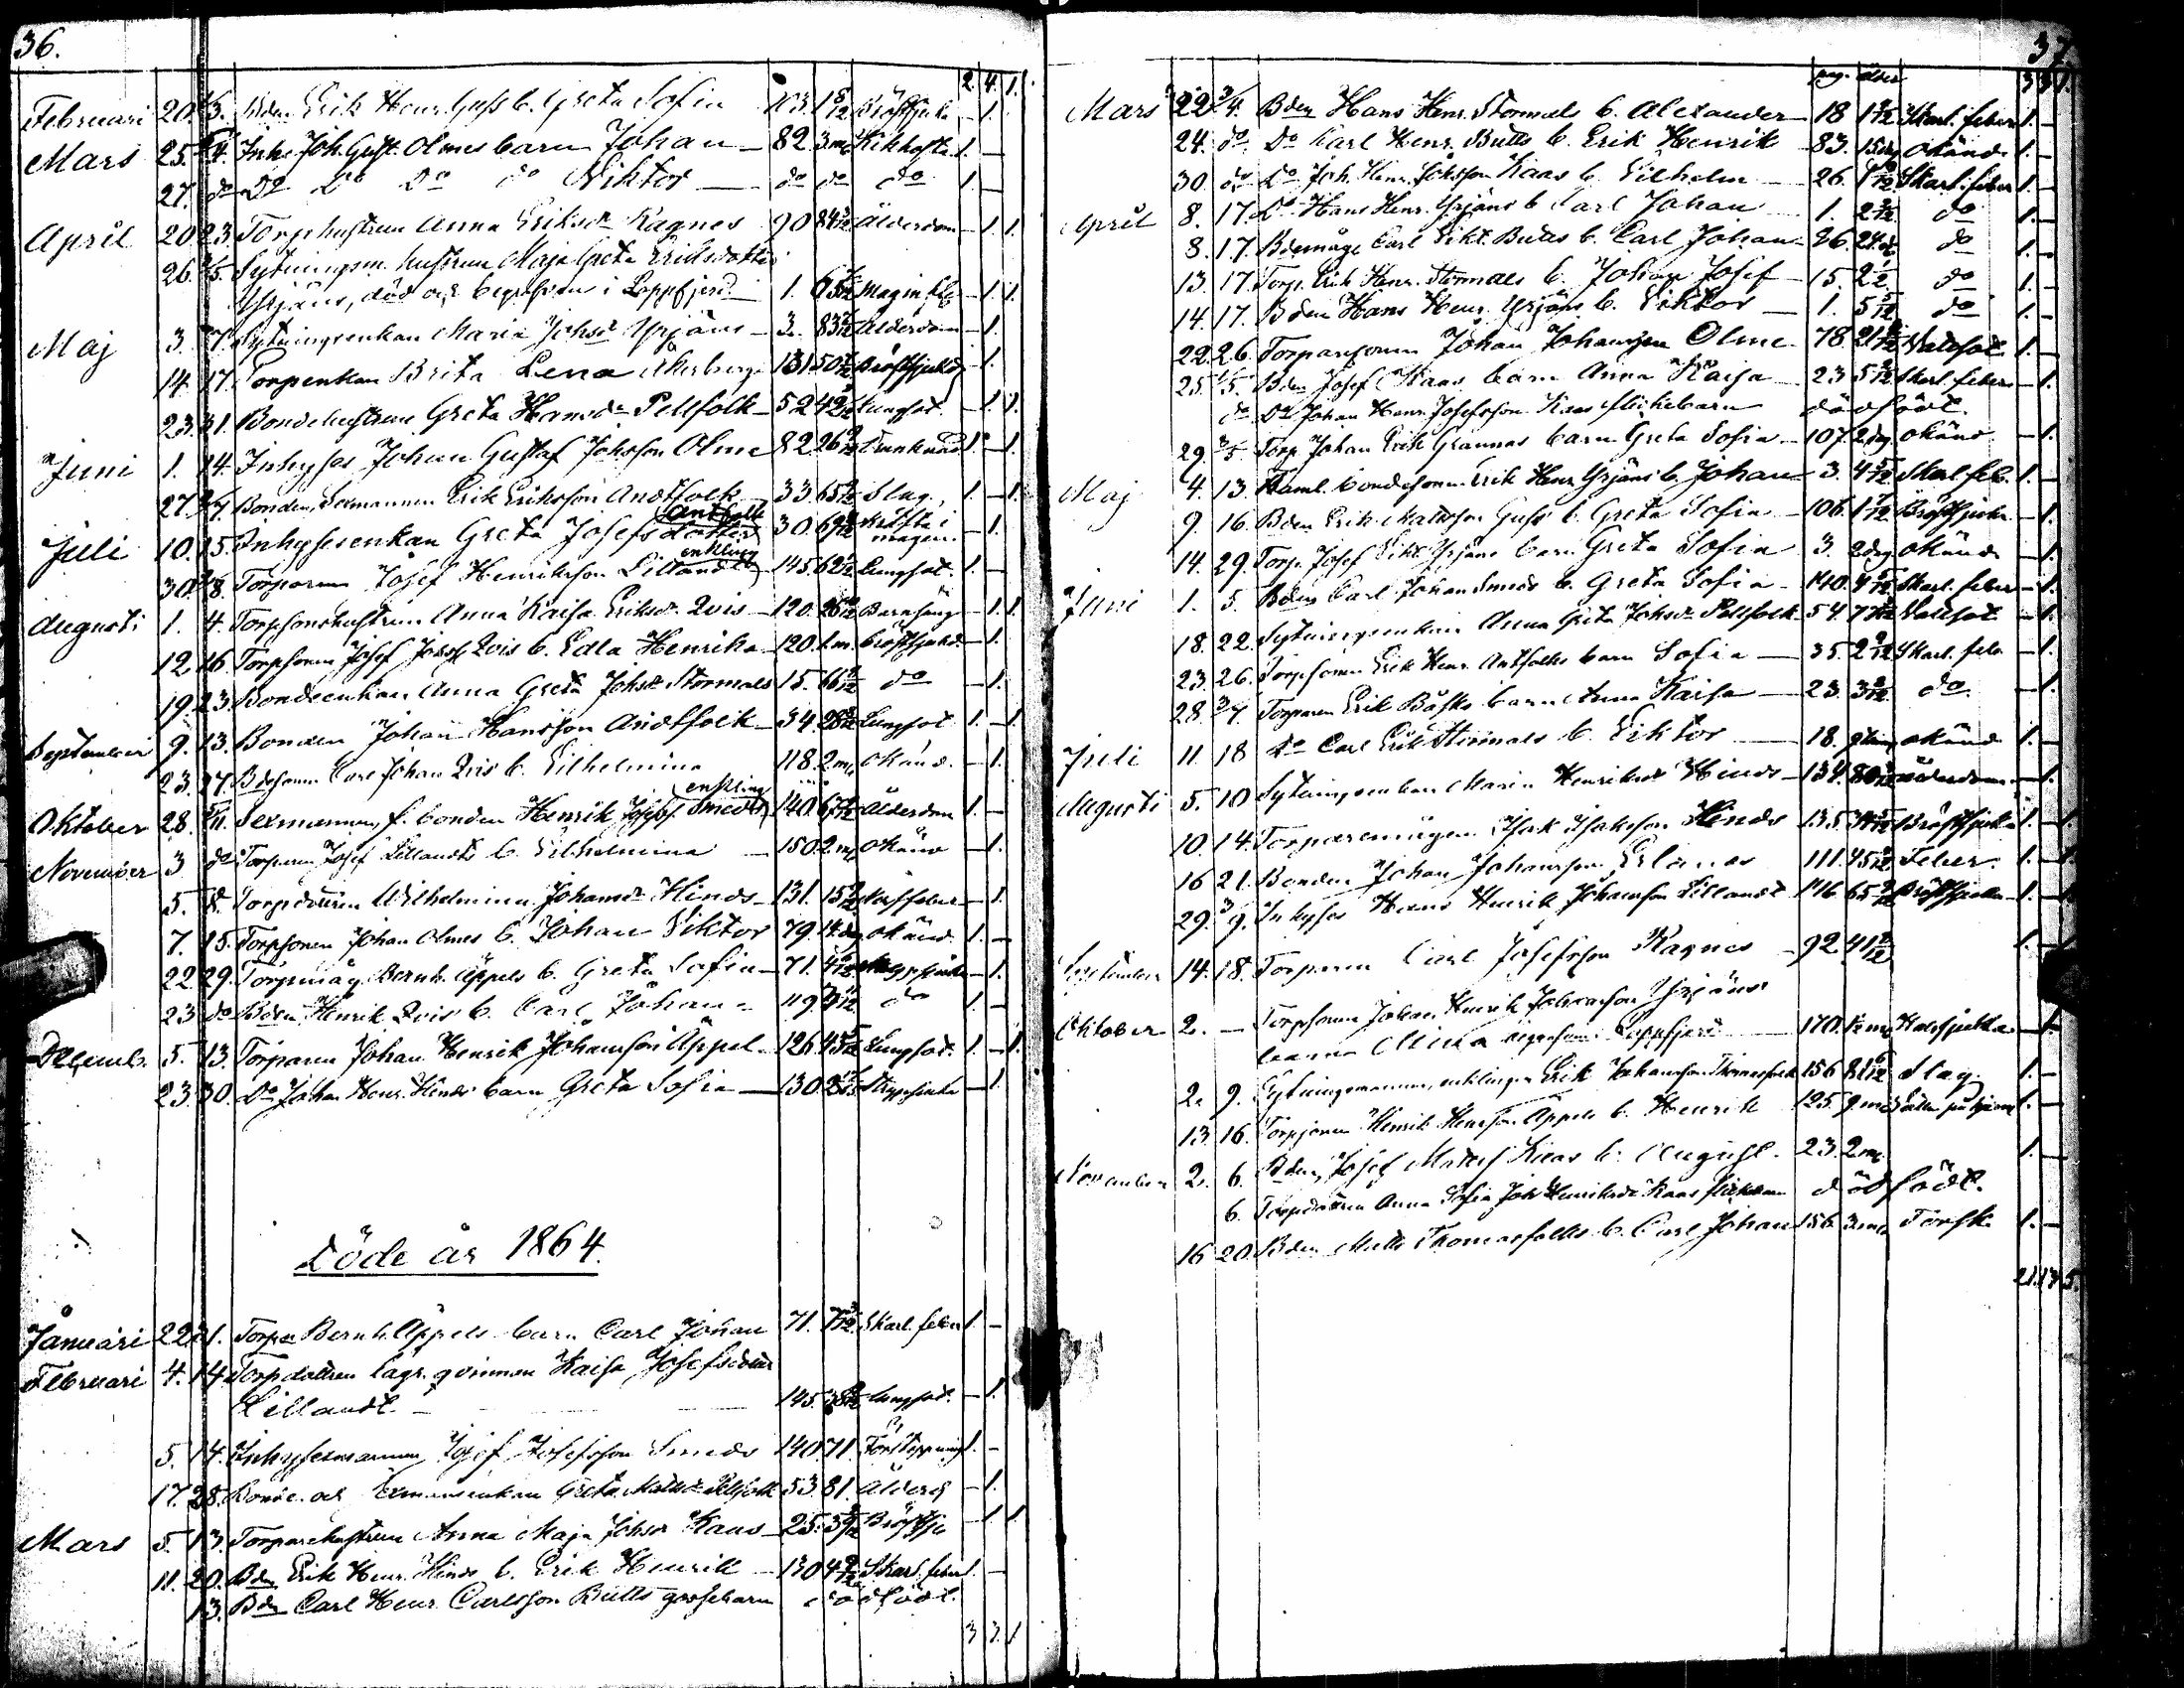 36.
2. 4. 1.
Februari 20. Bden Erik Henr. Guss b. Greta Sofia 103. 1 8/12 Bröstsjuka – 1.
Mars 25. Inhs Joh. Gust. Olmes barn Johan – 82. 3 m. Kikhosta 1. –
27. do Do Do Do do Viktor – do do do 1. –
April 20 23. Torphustrun Anna Eriksdr Ragnes 90 84 Ålderdom – 1. 1.
26. Sytningsm. hustrun Maja Greta Eriksdotter
Yrjäns, död och begrafven i Lappfjerd 1. 65 Maginfl. – 1. 1.
Maj 3. 7. Sytningsenkan Maria Johsdr Yrjäns – 3. 83 Ålderdom – 1.
14. 17. Torpenkan Brita Lena Åkerberg 131 50 Bröstsjukd – 1.
23. 31. Bondehustrun Greta Hansdr Pellfolk – 52 42 Lungsot. – 1. 1.
Juni 1. 14. Inhyses Johan Gustaf Johsson Olme 82 26 Drunknad 1. – 1.
27. Bonden, Sexmannen Erik Eriksson Andtfolk 33. 65 Slag. 1. – 1.
Juli 10. 15. Inhysesenkan Greta Josefsdotter Antfolk 30 69 Kräfta i magen. – 1.
30. Torparen Josef Henriksson Lillandt enkling 145. 62 Lungsot. 1. –
Augusti 1. 4. Torpsonshustrun Anna Kaisa Eriksdr Qvis – 120. 26 Barnsäng – 1. 1.
12. 16. Torpsonen Josef Johss. Qvis b. Edla Henrika – 120. 1 m. Bröstsjukd. – 1.
19. 23. Bondeenkan Anna Greta Johsdr Stormals 15. 66 do – 1.
September 9. 13. Bonden Johan Hansson Andtfolk – 34. 28 Lungsot 1. – 1.
23. 27. Bdesonen Carl Johan Qvis b. Vilhelmina 118. 2 m. okänd. – 1.
Oktober 28. Sexmannen, f. bonden Henrik Josefss. Smeds enkling 140. 67 Ålderdom 1. –
November 3 do Torparen Josef Lillandts b. Vilhelmina – 150. 2 m. okänd – 1.
5. 8. Torpdottren Wilhelmina Johansdr Hinds – 131. 15 – 1.
7. 15. Torpsonen Johan Olmes b. Johan Viktor 79. 14 dag okänd. 1. –
22. 29. Torpmåg Bernh. Äppels b. Greta Sofia – 71. 4 Strypsjuka – 1.
23 do Bden Henrik Qvis b. Carl Johan – 119. do 1. –
Decemb. 5. 13. Torparen Johan Henrik Johansson Äppel – 126. 45 Lungsot. 1. – 1.
23. 30. Do Johan Henr. Hinds barn Greta Sofia – 130. Strypsjuka – 1.
Döde år 1864.
Januari 22. 31. Torpm Bernh. Äppels barn Carl Johan 71. 7 Skarl. feber 1. –
Februari 4. 14. Torpdottren lägr. qvinnan Kaisa Josefsdotter
Lillandt – 145. 38 Lungsot. – 1.
5. 14. Inhysesmannen Josef Josefsson Smeds 140. 71. Förstoppning 1. –
17. 28. Bonde- och Sexmansenkan Greta Matsdr Pellfolk 53. 81. Ålderd – 1.
Mars 5. 13. Torparehustrun Anna Maja Johsdr Kaas – 25. 39 Bröstsju – 1 1.
11. 20. Bden Erik Henr. Hinds b. Erik Henrik – 130 4 Skarl. feber 1. –
13. Bden Carl Henr. Carlsson Bulls gossebarn dödfödt.
3 3. 1
37.
pag. ålder 3 3 1.
Mars 22. 3/4. Bden Hans Henr. Stormals b. Alexander – 18 1 Skarl. feber 1. –
24. do Do Karl Henr. Bulls b. Erik Henrik – 83. 15 dag okänd 1. –
30. do Do Joh. Henr. Johsson Kaas b. Vilhelm – 26. 1 Skarl. feber 1. –
April 8. 17. Do Hans Henr. Yrjäns b. Carl Johan 1. 2 do 1. –
8. 17. Bdemåge Carl Vikt. Bulls b. Carl Johan – 86. 2 do 1. –
13. 17. Torp. Erik Henr. Stormals b. Johan Josef – 15. 2 do 1. –
14. 17. Bden Hans Henr. Yrjäns b. Viktor – 1. 5/12 do 1. –
22. 26. Torparsonen Johan Johansson Olme 78. 21 Vattsot 1. –
25. 1/5. Bden Josef Kaas barn Anna Kaisa – 23. 5 Skarl. feber – 1.
do Do Johan Henr. Josefsson Kaas flickebarn dödfödt.
29. 3/5 Torp. Johan Erik Grannas barn Greta Sofia – 107. 2 dag okänd – 1.
Maj 4. 13. Gaml. bondesonen Erik Henr. Yrjäns b. Johan – 3. 4 Skarl. feb. 1. –
9. 16. Bden Erik Mattsson Guss b. Greta Sofia – 106. 1 Bröstsjuka – 1.
14. 29. Torp. Josef Vikt. Yrjäns barn Greta Sofia 3. 2 dag okänd – 1.
Juni 1. 5. Bden Carl Johan Smeds b. Greta Sofia – 140. 4 Skarl. feber – 1.
18. 22. Sytningsenkan Anna Greta Johsdr Pellfolk – 54. 77 Vattsot – 1.
23. 26. Torpsonen Erik Henr. Antfolks barn Sofia – 35. 2 Skarl. feb – 1.
28. 3/7. Torparen Erik Båsks barn Anna Kaisa – 23. 3 do – 1.
Juli 11. 18 Do Carl Erik Stormals b. Viktor – 18. okänd 1. –
Augusti 5. 10 Sytningsenkan Maria Henriksdr Hinds – 134. 80 ålderdom – 1.
10. 14. Torparemågen Isak Isaksson Hinds 135. Bröstsjuka 1. 1.
16 21. Bonden Johan Johansson Erlands 111. 45 Feber. 1. – 1.
29. Inhyses Hans Henrik Johansson Lillandt 146. 65 Bröstsjuka 1. – 1.
September 14. 18. Torparen Carl Josefsson Ragnes – 92 41 1. – 1.
Oktober 2. – Torpsonen Johan Henrik Johansson Yrjäns
barn Alina begrafven i Lappfjerd – 170. – 1.
2. 9. Sytningsmannen, enklingen Erik Johansson Thomasfolk 156 81 Slag. 1. –
13. 16. Torpsonen Henrik Henrsson Äppels b. Henrik 125. 9 m. 1. –
November 2. 6. Bden Josef Matts Kaas b. August. 23. 2 m. 1. –
6. Torpdottren Anna Sofia Joh. Henriksdr Kaas flickebarn dödfödt.
16 20. Bden Matts Thomasfolks b. Carl Johan 156. 3 m. Torsk 1. –
21. 17. 5.